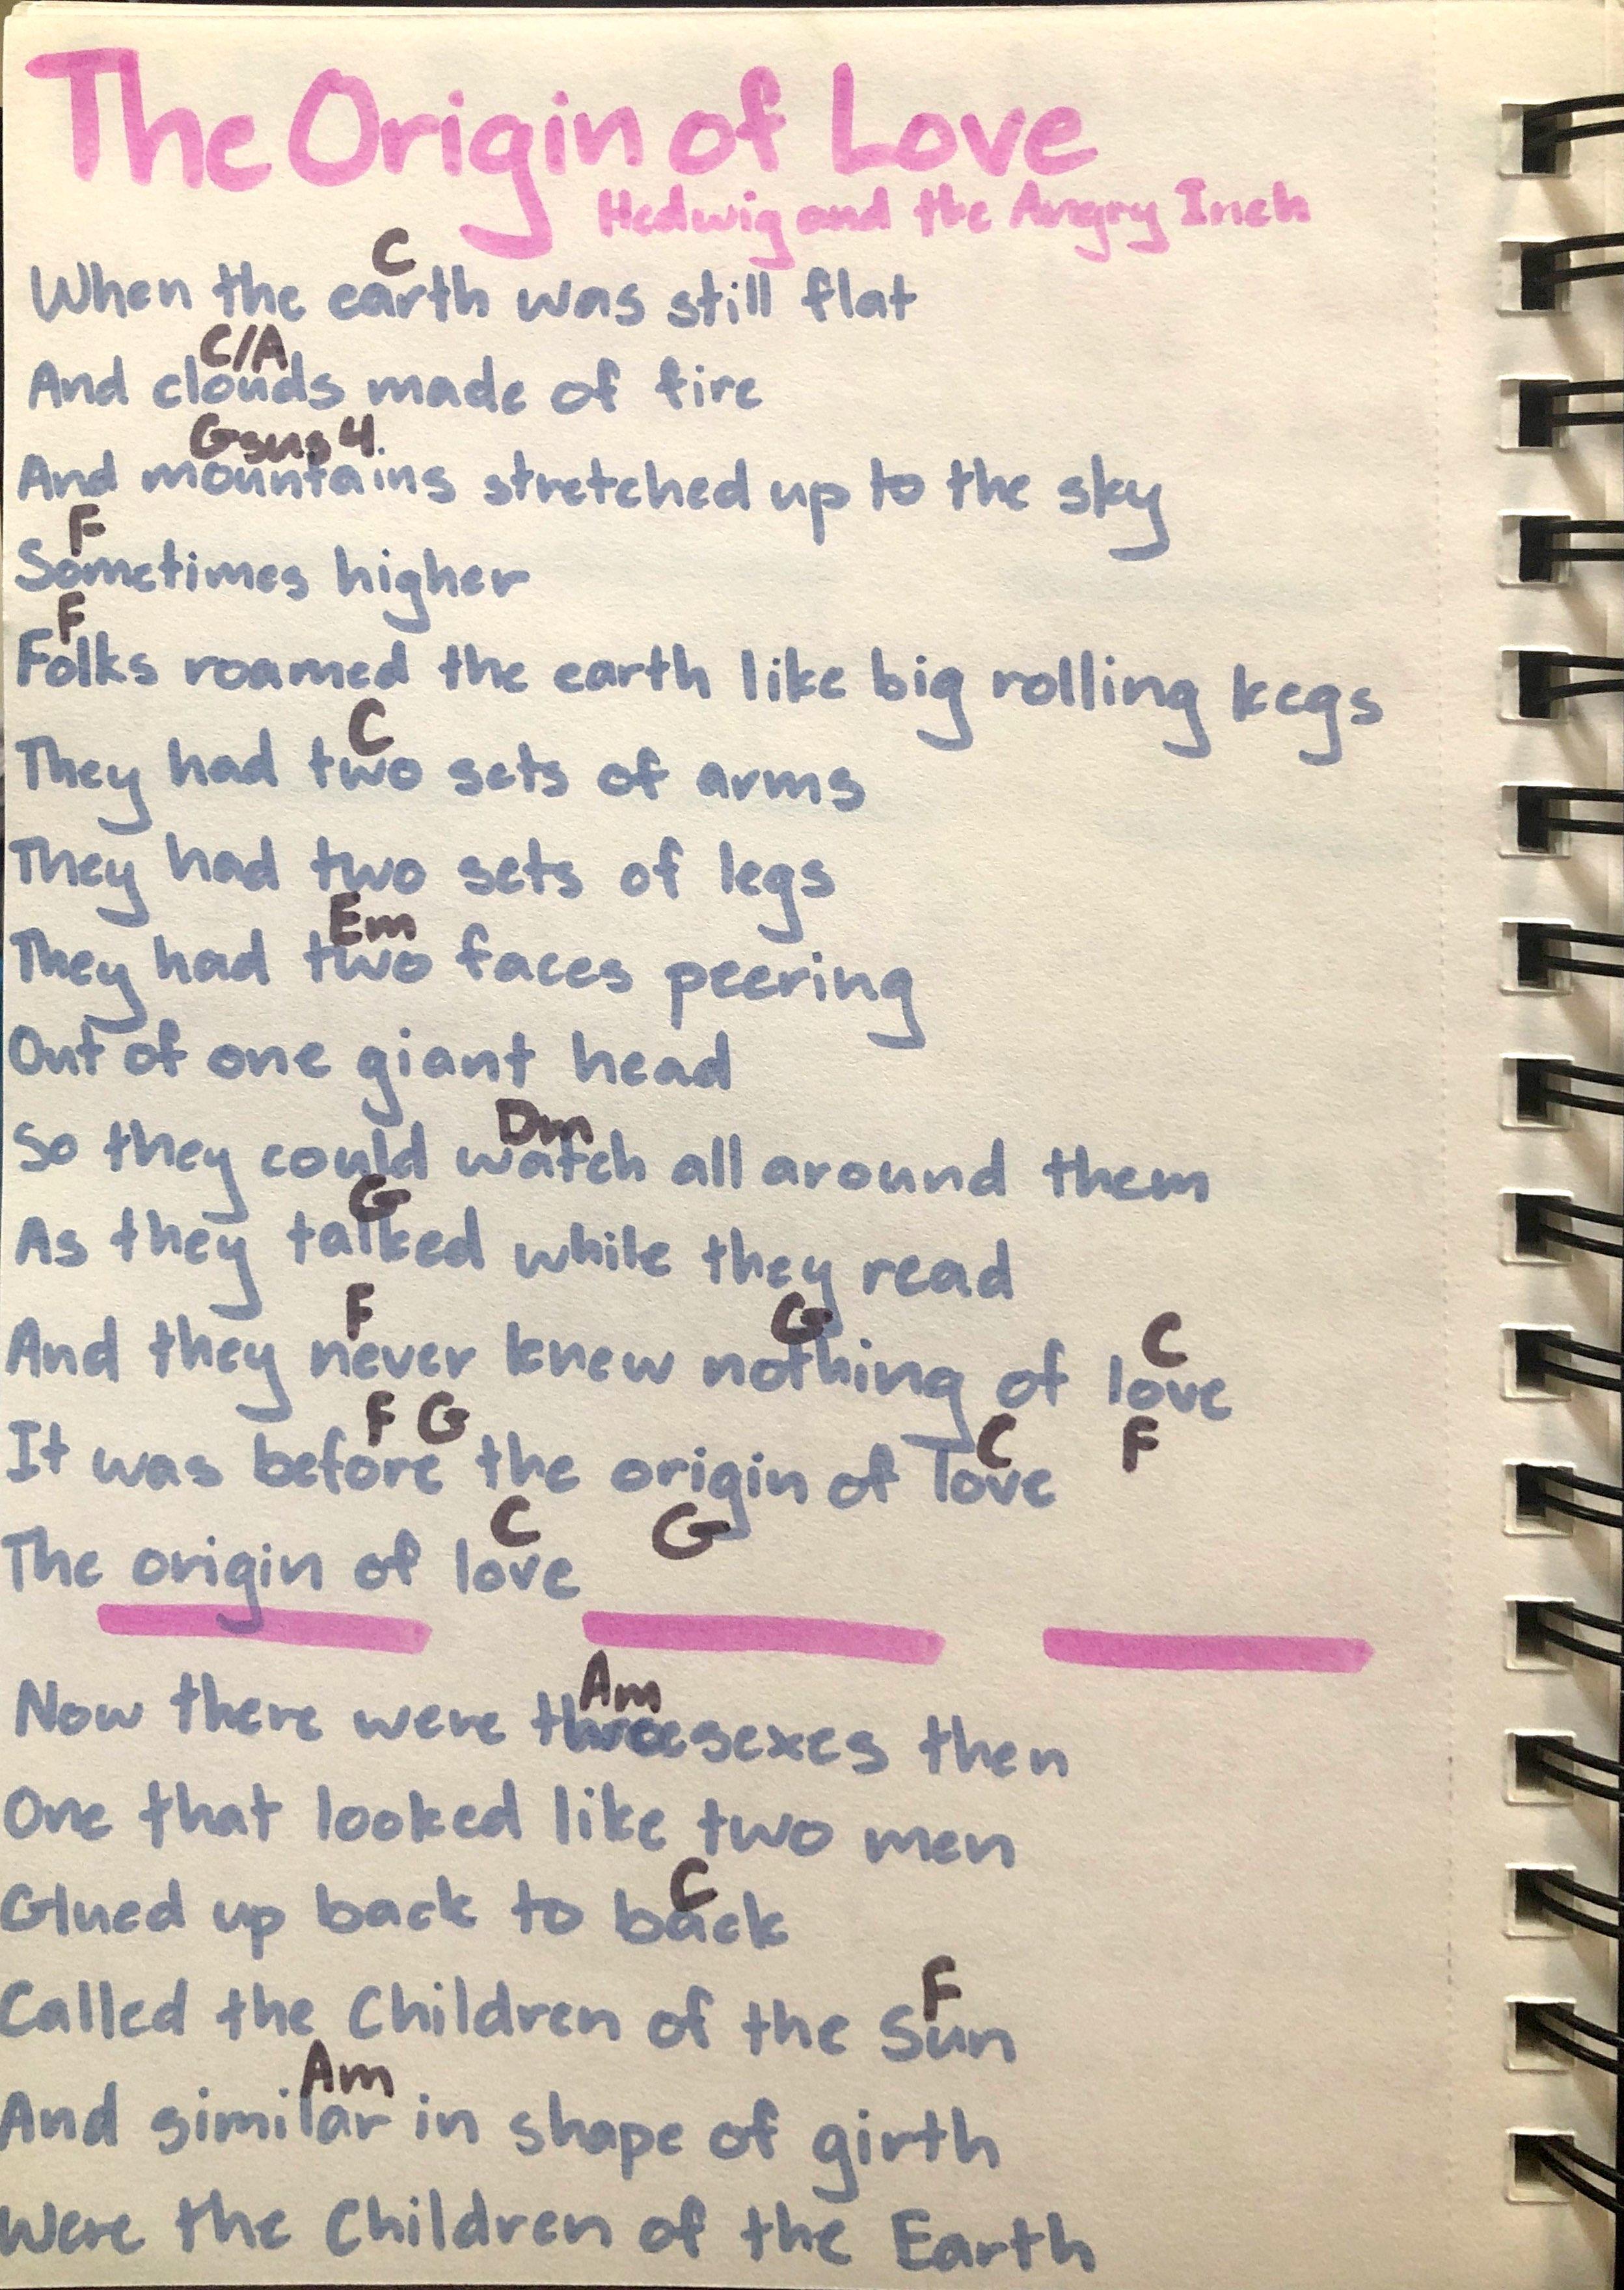 The Origin of Love
Hedwig and the Angry Inch
C
When the earth was still flat
C/A
And clouds made of fire
Gsus4
And mountains stretched up to the sky
F
Sometimes higher
F
Folks roamed the earth like big rolling kegs
C
They had two sets of arms
They had two sets of legs
Em
They had two faces peering
Out of one giant head
Dm
So they could watch all around them
G
As they talked while they read
F G C
And they never knew nothing of love
F G C F
It was before the origin of love
C G
The origin of love
Am
Now there were three sexes then
One that looked like two men
C
Glued up back to back
F
Called the Children of the Sun
Am
And similar in shape of girth
Were the Children of the Earth